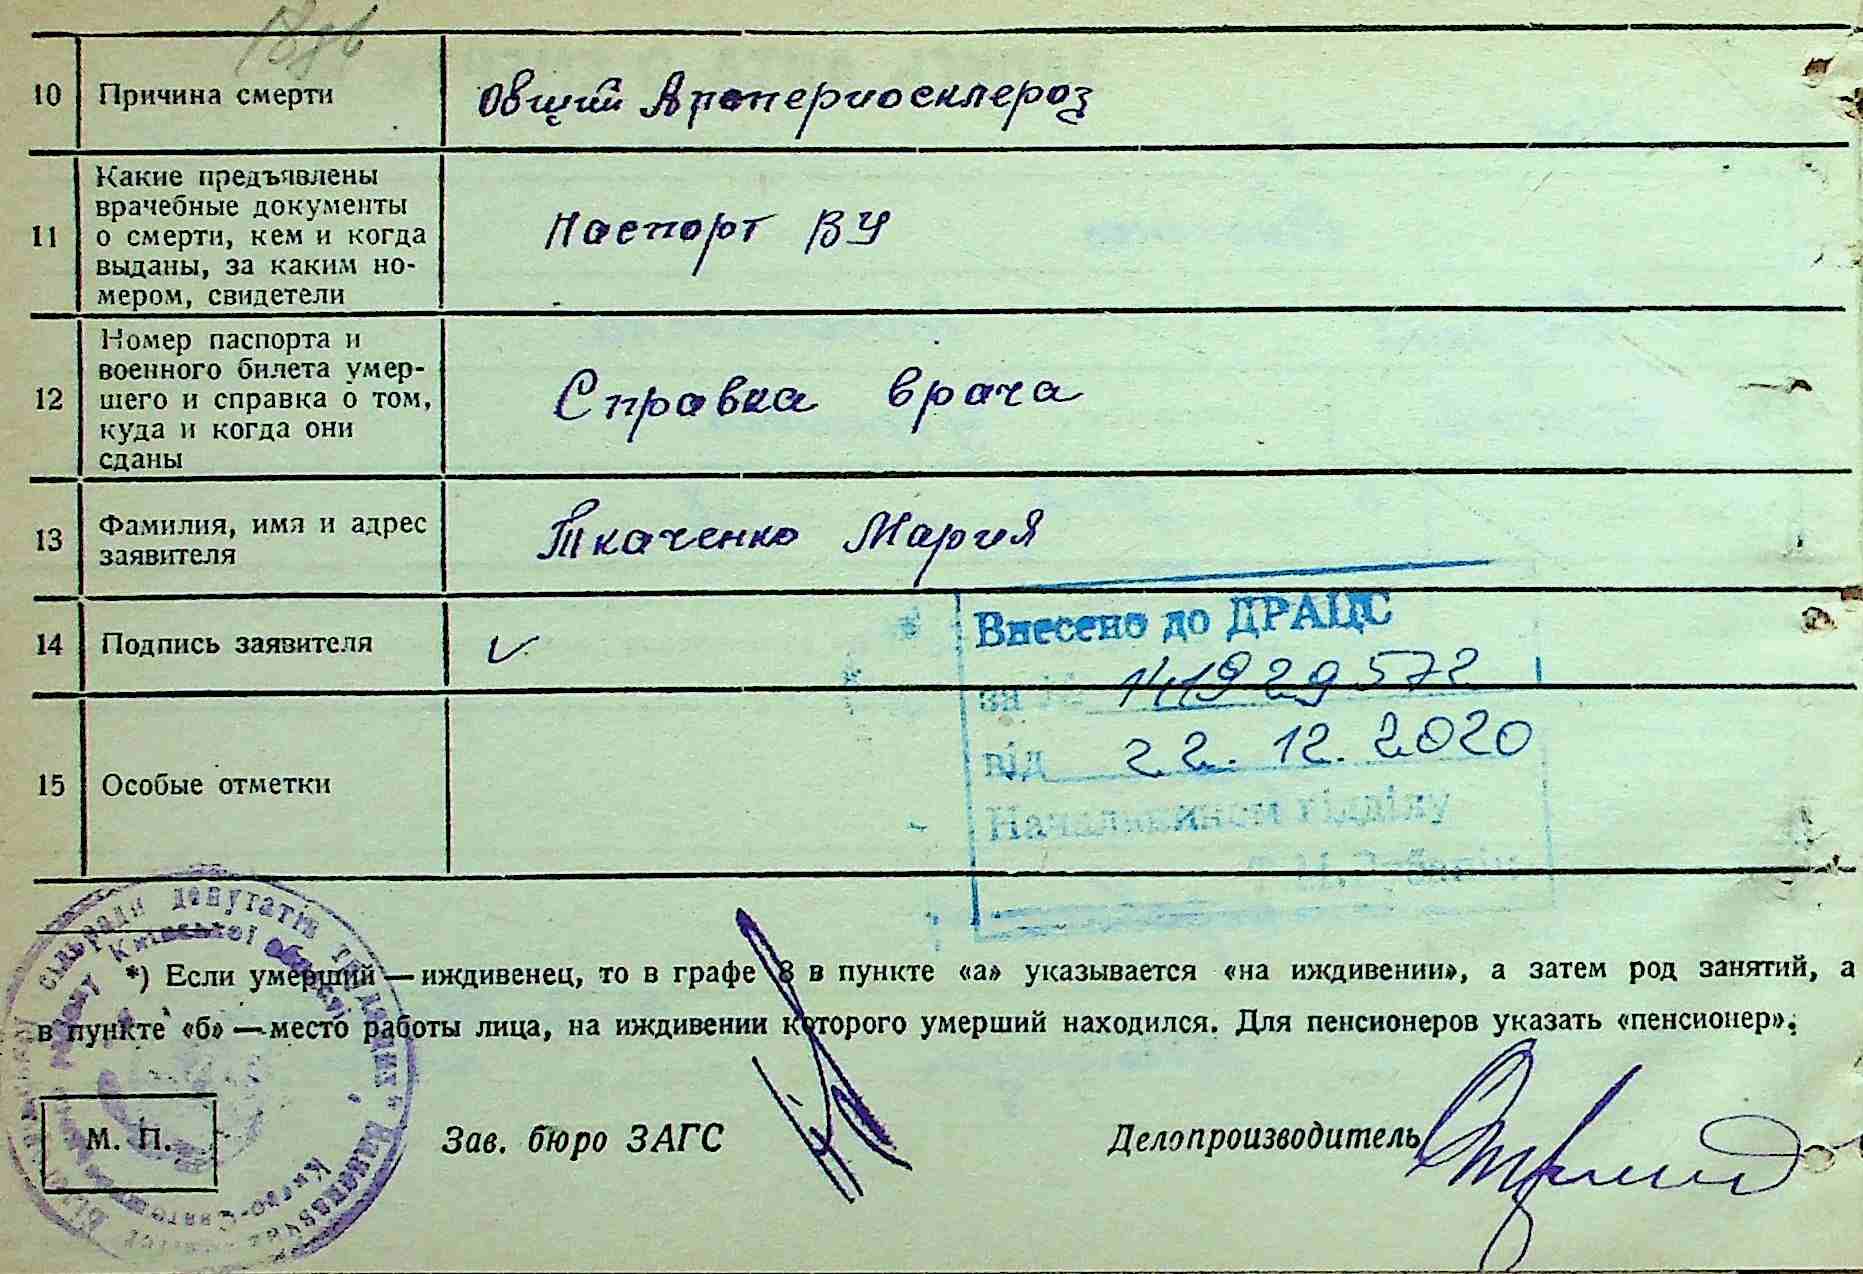 10 Причина смерти Общий Артериосклероз
11 Какие предъявлены
врачебные документы
о смерти, кем и когда
выданы, за каким но-
мером, свидетели
Паспорт ВУ
12 Номер паспорта и
военного билета умер-
шего и справка о том,
куда и когда они
сданы
Справка врача
13 Фамилия, имя и адрес
заявителя
Ткаченко Мария
14 Подпись заявителя
Внесено до ДРАЦС
за № 141929572
від 22.12.2020
Начальником відділу
15 Особые отметки
сільради депутатів трудящих
Київської області
Києво-Святошин
*) Если умерший — иждивенец, то в графе 8 в пункте «а» указывается «на иждивении», а затем род занятий, а
в пункте «б» — место работы лица, на иждивении которого умерший находился. Для пенсионеров указать «пенсионер».
М. П. Зав. бюро ЗАГС Делопроизводитель